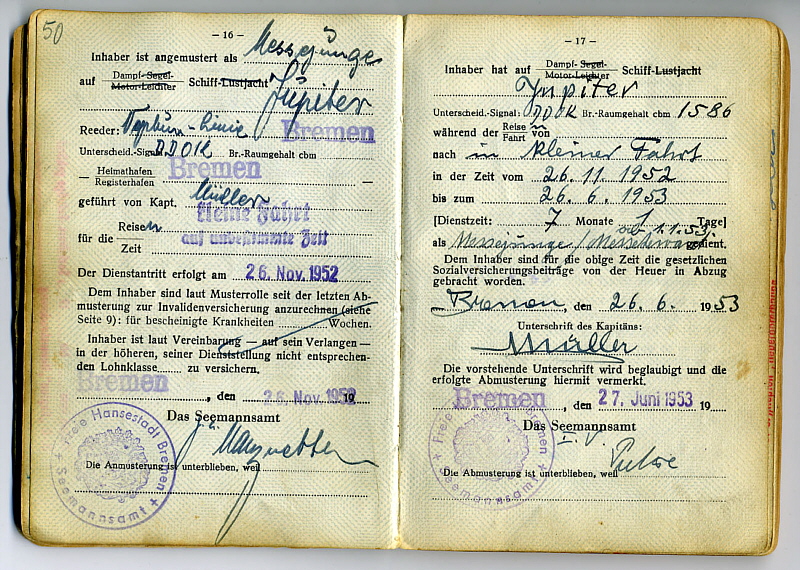 50
– 16 –
Inhaber ist angemustert als Messejunge
auf Dampf-Segel- Motor-Leichter Schiff-Lustjacht Jupiter
Bremen
Reeder: Neptun-Linie
Unterscheid.-Signal DDOR Br.-Raumgehalt cbm
Heimathafen Registerhafen Bremen
geführt von Kapt. Müller
kleine Fahrt
Reisen
auf unbestimmte Zeit
für die Zeit
Der Dienstantritt erfolgt am 26. Nov. 1952
Dem Inhaber sind laut Musterrolle seit der letzten Ab-
musterung zur Invalidenversicherung anzurechnen (siehe
Seite 9): für bescheinigte Krankheiten Wochen.
Inhaber ist laut Vereinbarung — auf sein Verlangen —
in der höheren, seiner Dienststellung nicht entsprechen-
den Lohnklasse zu versichern.
Bremen, den 26. Nov. 1952 19
Das Seemannsamt
Freie Hansestadt Bremen
Seemannsamt
Die Anmusterung ist unterblieben, weil
– 17 –
Inhaber hat auf Dampf-Segel- Motor-Leichter Schiff-Lustjacht
Jupiter
Unterscheid.-Signal: DDOR Br.-Raumgehalt cbm 1586
während der Reisen Fahrt von
nach in kleiner Fahrt
in der Zeit vom 26. 11. 1952
bis zum 26. 6. 1953
[Dienstzeit: 7 Monate 1 Tage]
ab 1.1.53.
als Messejunge / gedient.
Dem Inhaber sind für die obige Zeit die gesetzlichen
Sozialversicherungsbeiträge von der Heuer in Abzug
gebracht worden.
Bremen, den 26. 6. 1953
Unterschrift des Kapitäns:
Müller
Die vorstehende Unterschrift wird beglaubigt und die
erfolgte Abmusterung hiermit vermerkt.
Bremen, den 27. Juni 1953 19
Das Seemannsamt
Freie Hansestadt Bremen
Seemannsamt
Die Abmusterung ist unterblieben, weil